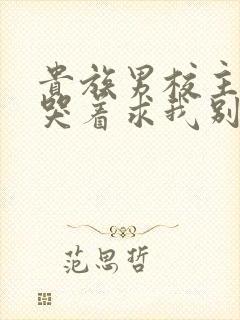 贵族男校主
哭着求我别
范思哲